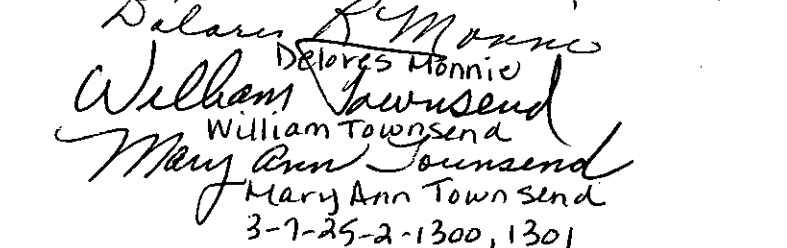 Dolores R Monnie
Delores Monnie
William Townsend
William Townsend
Mary Ann Townsend
Mary Ann Townsend
3-7-25-2-1300, 1301